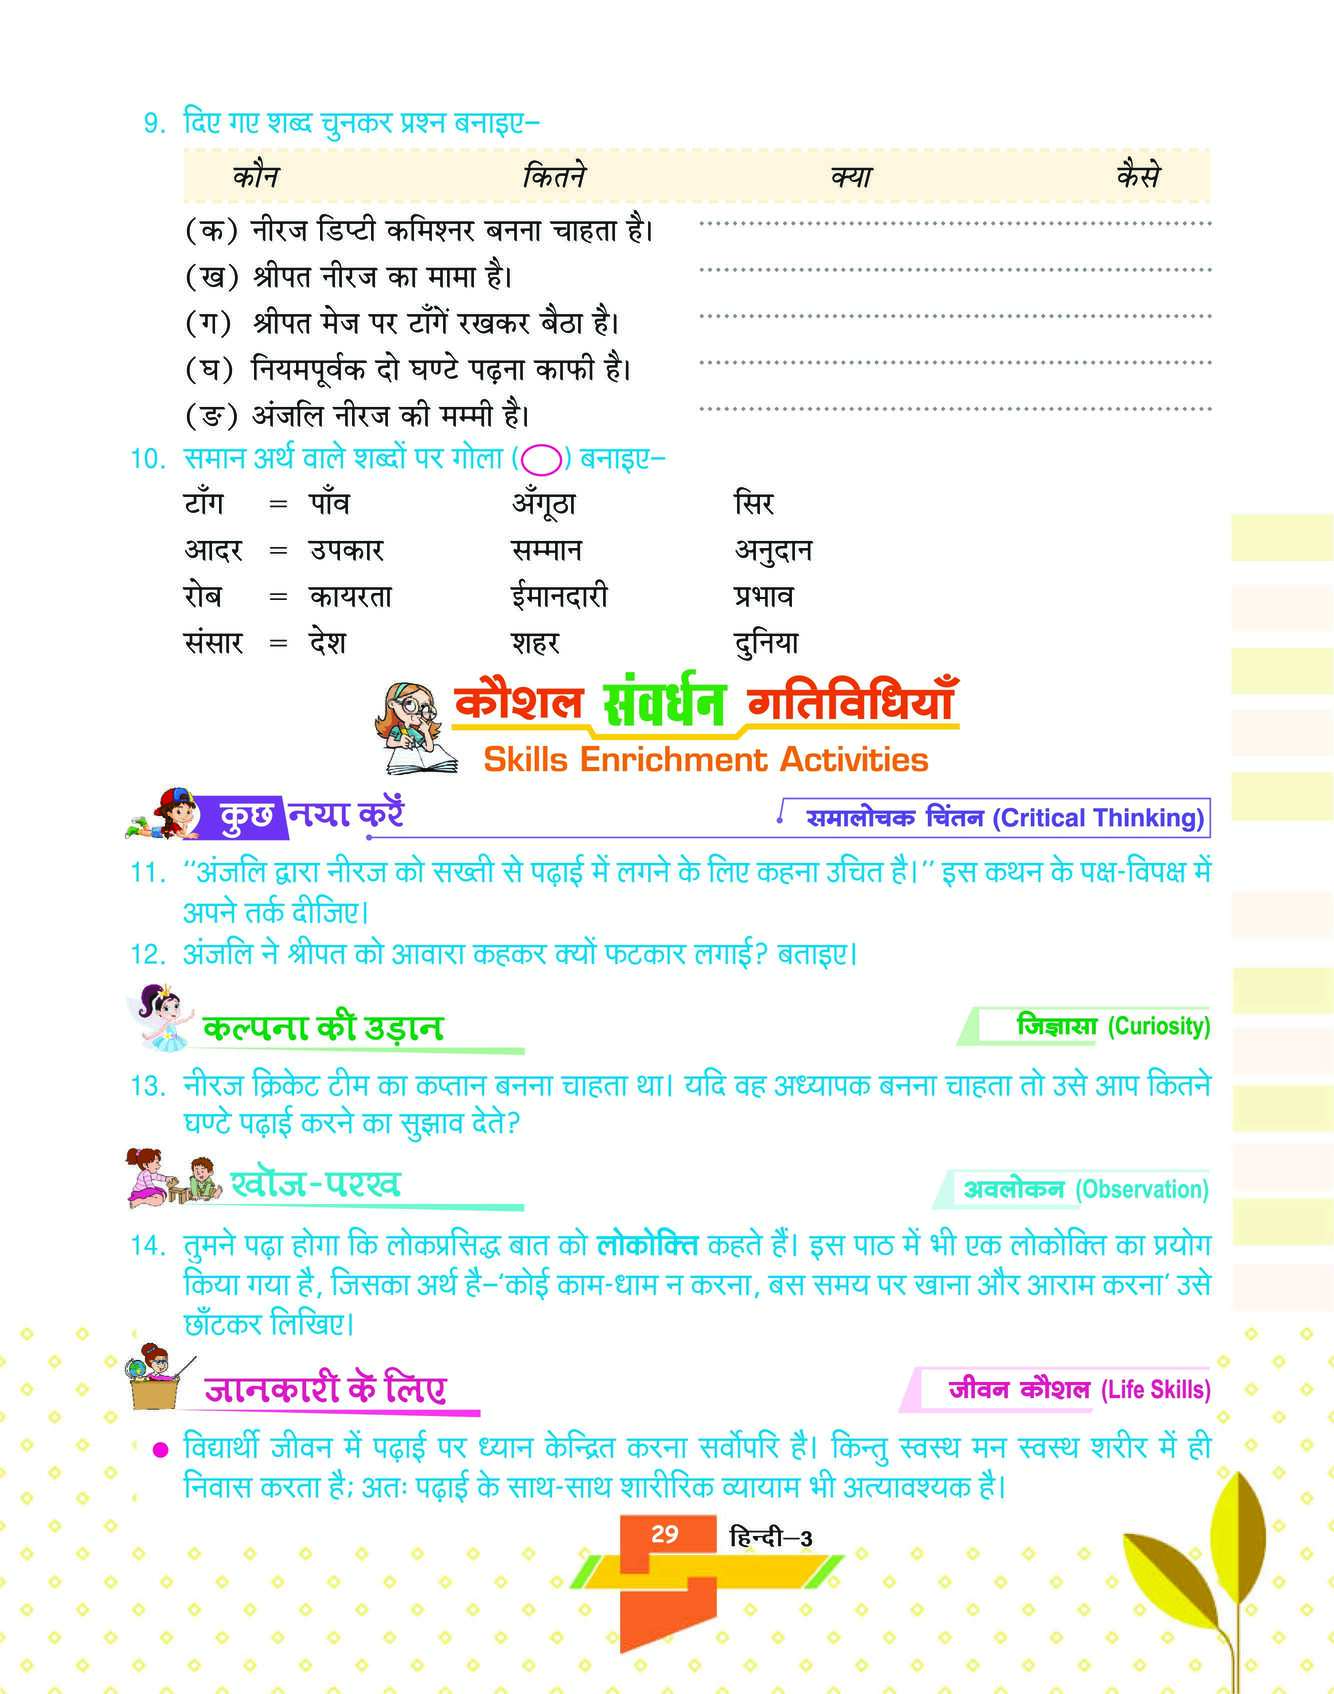 9. दिए गए शब्द चुनकर प्रश्न बनाइए–
कौन कितने क्या कैसे
(क) नीरज डिप्टी कमिश्नर बनना चाहता है।
(ख) श्रीपत नीरज का मामा है।
(ग) श्रीपत मेज पर टाँगें रखकर बैठा है।
(घ) नियमपूर्वक दो घण्टे पढ़ना काफी है।
(ङ) अंजलि नीरज की मम्मी है।
10. समान अर्थ वाले शब्दों पर गोला ( ) बनाइए–
टाँग = पाँव अँगूठा सिर
आदर = उपकार सम्मान अनुदान
रोब = कायरता ईमानदारी प्रभाव
संसार = देश शहर दुनिया
कौशल संवर्धन गतिविधियाँ
Skills Enrichment Activities
कुछ नया करें समालोचक चिंतन (Critical Thinking)
11. ‘‘अंजलि द्वारा नीरज को सख्ती से पढ़ाई में लगने के लिए कहना उचित है।’’ इस कथन के पक्ष-विपक्ष में
अपने तर्क दीजिए।
12. अंजलि ने श्रीपत को आवारा कहकर क्यों फटकार लगाई? बताइए।
कल्पना की उड़ान जिज्ञासा (Curiosity)
13. नीरज क्रिकेट टीम का कप्तान बनना चाहता था। यदि वह अध्यापक बनना चाहता तो उसे आप कितने
घण्टे पढ़ाई करने का सुझाव देते?
खोज-परख अवलोकन (Observation)
14. तुमने पढ़ा होगा कि लोकप्रसिद्ध बात को लोकोक्ति कहते हैं। इस पाठ में भी एक लोकोक्ति का प्रयोग
किया गया है, जिसका अर्थ है–‘कोई काम-धाम न करना, बस समय पर खाना और आराम करना’ उसे
छाँटकर लिखिए।
जानकारी के लिए जीवन कौशल (Life Skills)
● विद्यार्थी जीवन में पढ़ाई पर ध्यान केन्द्रित करना सर्वोपरि है। किन्तु स्वस्थ मन स्वस्थ शरीर में ही
निवास करता है; अतः पढ़ाई के साथ-साथ शारीरिक व्यायाम भी अत्यावश्यक है।
29 हिन्दी–3